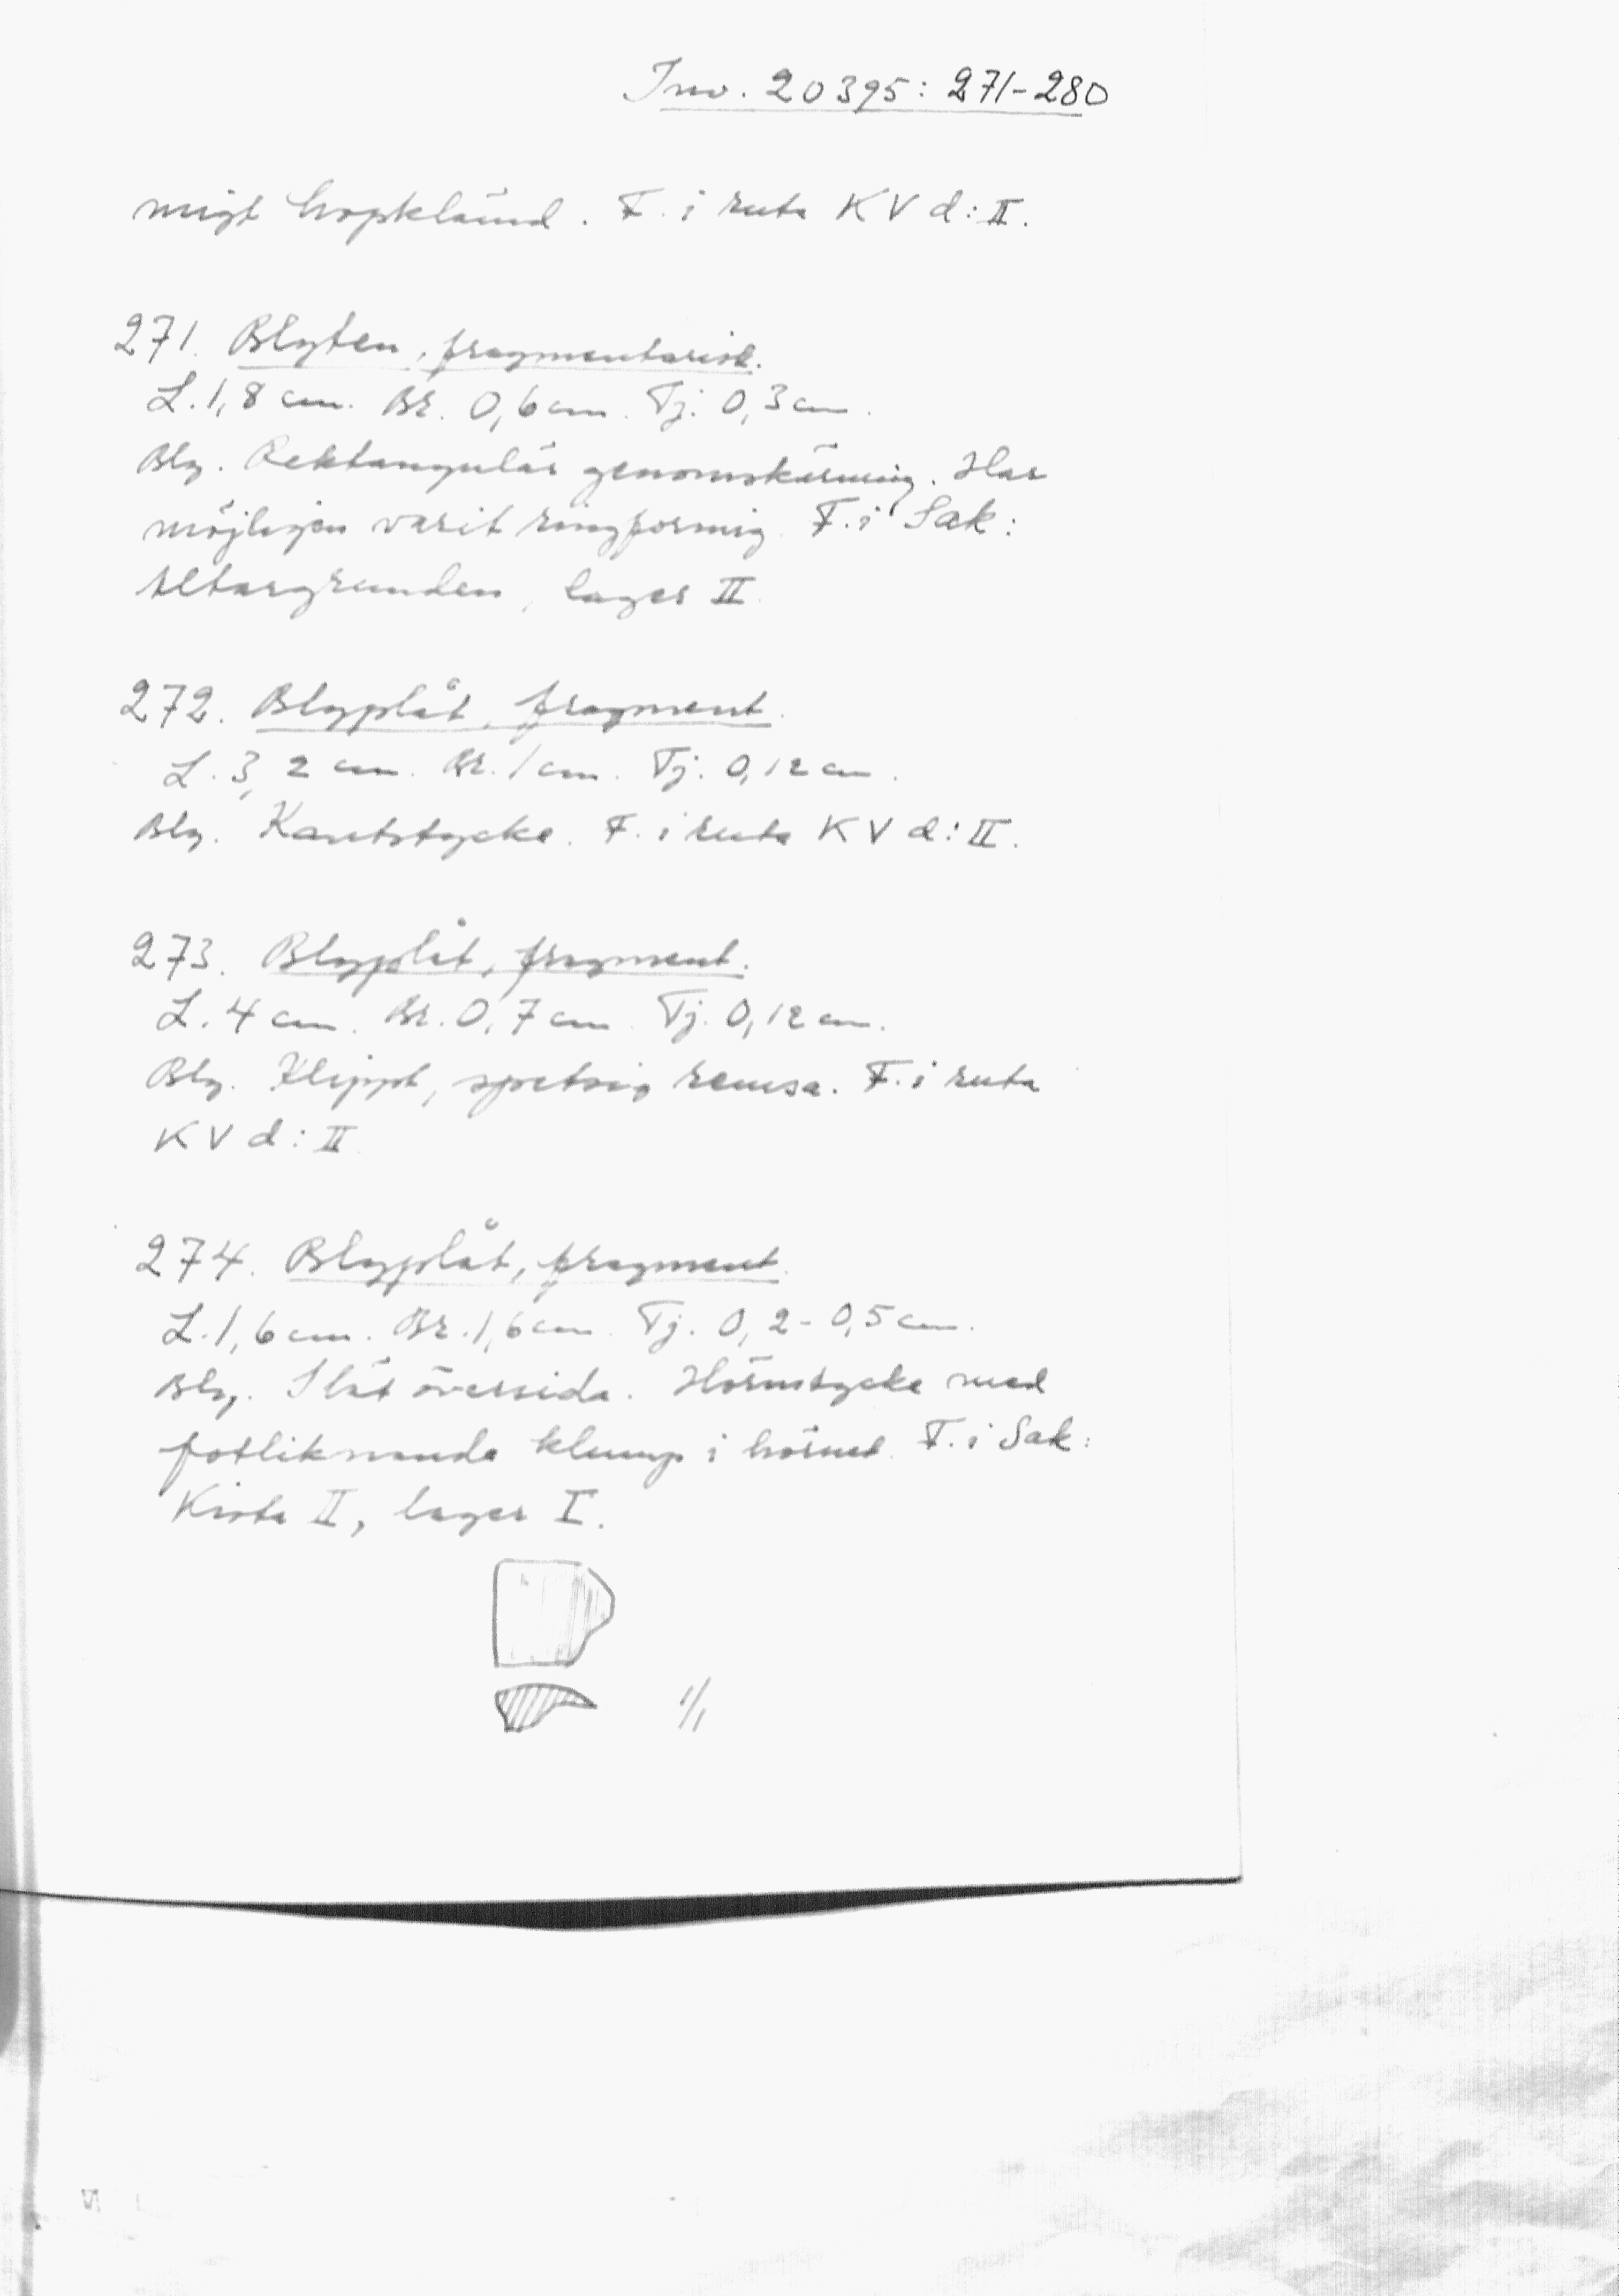 Inv. 20395: 271-280
migt hopklämd. F. i ruta KV d: II.
271. Blyten, fragmentarisk.
L. 1,8 cm. Br. 0,6 cm. Tj. 0,3 cm.
Bly. Rektangulär genomskärning. Har
möjligen varit ringformig. F. i Sak:
Altargrunden, lager II.
272. Blyplåt, fragment.
L. 3,2 cm. Br. 1 cm. Tj. 0,12 cm.
Bly. Kantstycke. F. i ruta KV d: II.
273. Blyplåt, fragment.
L. 4 cm. Br. 0,7 cm. Tj. 0,12 cm.
Bly. Klippt, spetsig remsa. F. i ruta
KV d: II.
274. Blyplåt, fragment.
L. 1,6 cm. Br. 1,6 cm. Tj. 0,2-0,5 cm.
Bly. Slät översida. Hörnstycke med
fotliknande klump i hörnet. F. i Sak:
Kista II, lager I.
1/1